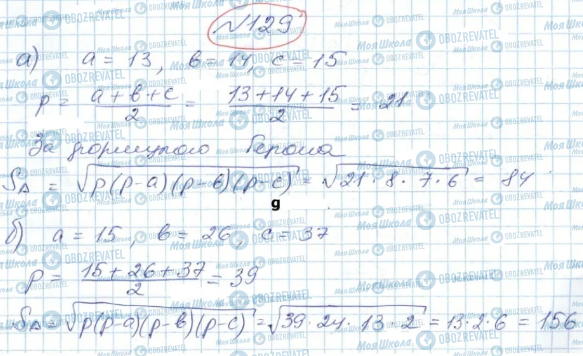 №129
а) a = 13, b = 14, c = 15
p = \frac{a+b+c}{2} = \frac{13+14+15}{2} = 21
За формулою Герона
S_Δ = \sqrt{p(p-a)(p-b)(p-c)} = \sqrt{21·8·7·6} = 84
g
б) a = 15, b = 26, c = 37
p = \frac{15+26+37}{2} = 39
S_Δ = \sqrt{p(p-a)(p-b)(p-c)} = \sqrt{39·24·13·2} = 13·2·6 = 156
Моя Школа
OBOZREVATEL